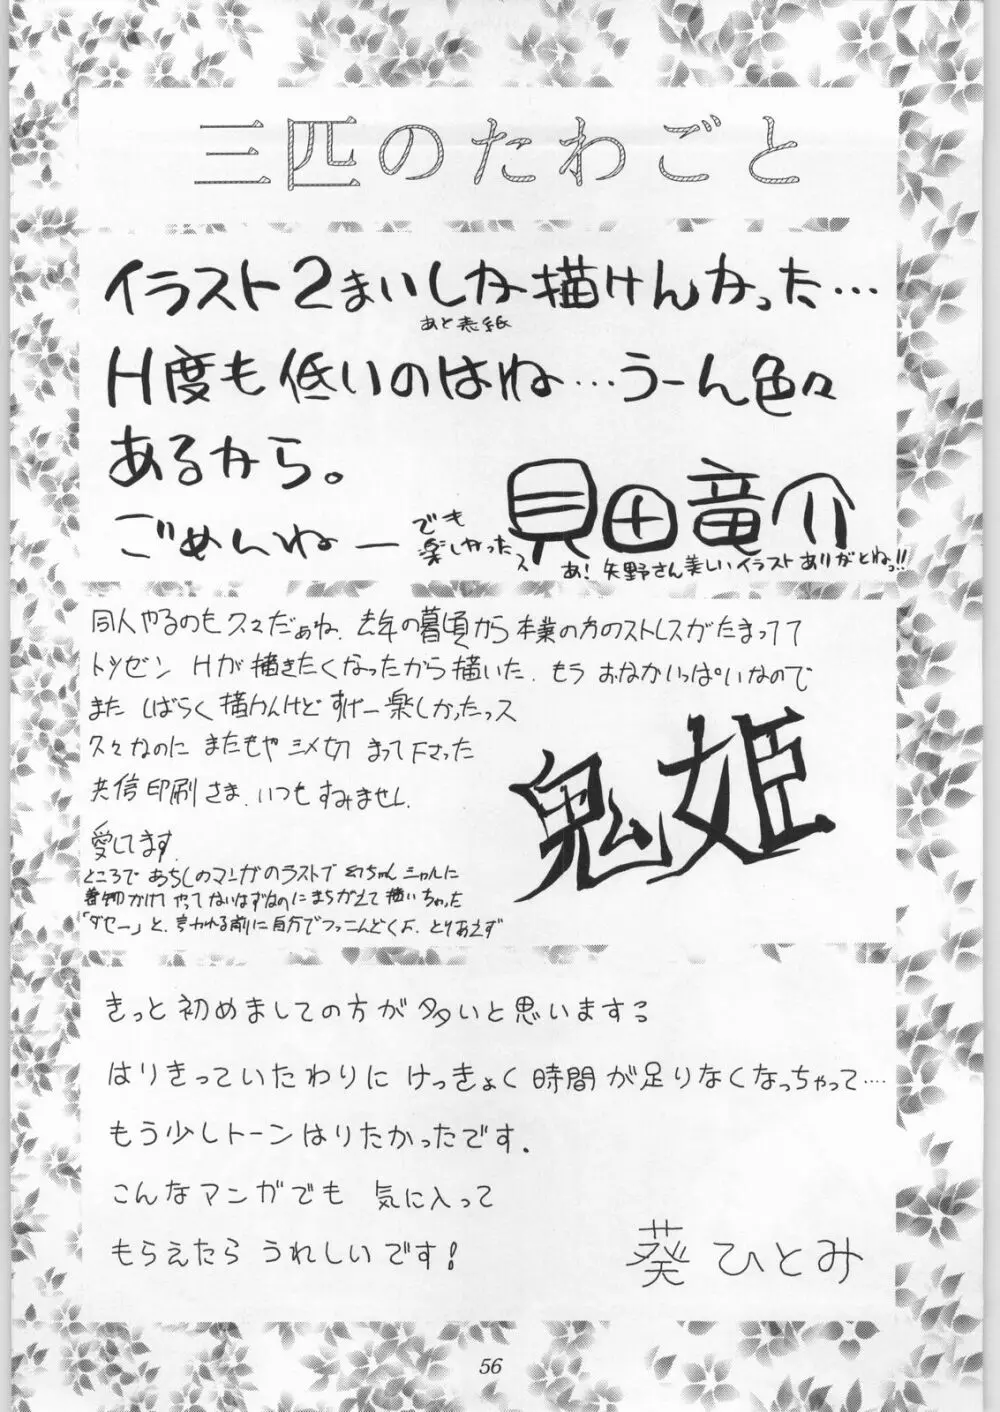 三匹のたわごと
イラスト2まいしか描けんかった…
あと表紙
H度も低いのはね…うーん色々
あるから。
ごめんねー
でも
楽しかったス
貝田竜介
あ!矢野さん美しいイラストありがとねっ!!
同人やるのも久々だぁね、去年の暮頃から本業の方のストレスがたまってて
トツゼン Hが描きたくなったから描いた.もう おなかいっぱいなので
また しばらく描かんけど すげー楽しかったっス
久々なのに またもや シメ切 まって下さった
共信印刷さま.いつもすみません.
愛してます.
ところで あちしのマンガのラストで 幻ちゃん シャルに
着物かけて やってないはずなのに まちがえて 描いちゃった
「ダセー」と.言われる前に自分でつっこんどくよ.とりあえず
鬼姫
きっと初めましての方が多いと思いまする
はりきっていたわりに けっきょく 時間が足りなくなっちゃって‥‥
もう少しトーンはりたかったです.
こんなマンガでも 気に入って
もらえたら うれしいです!
葵ひとみ
56